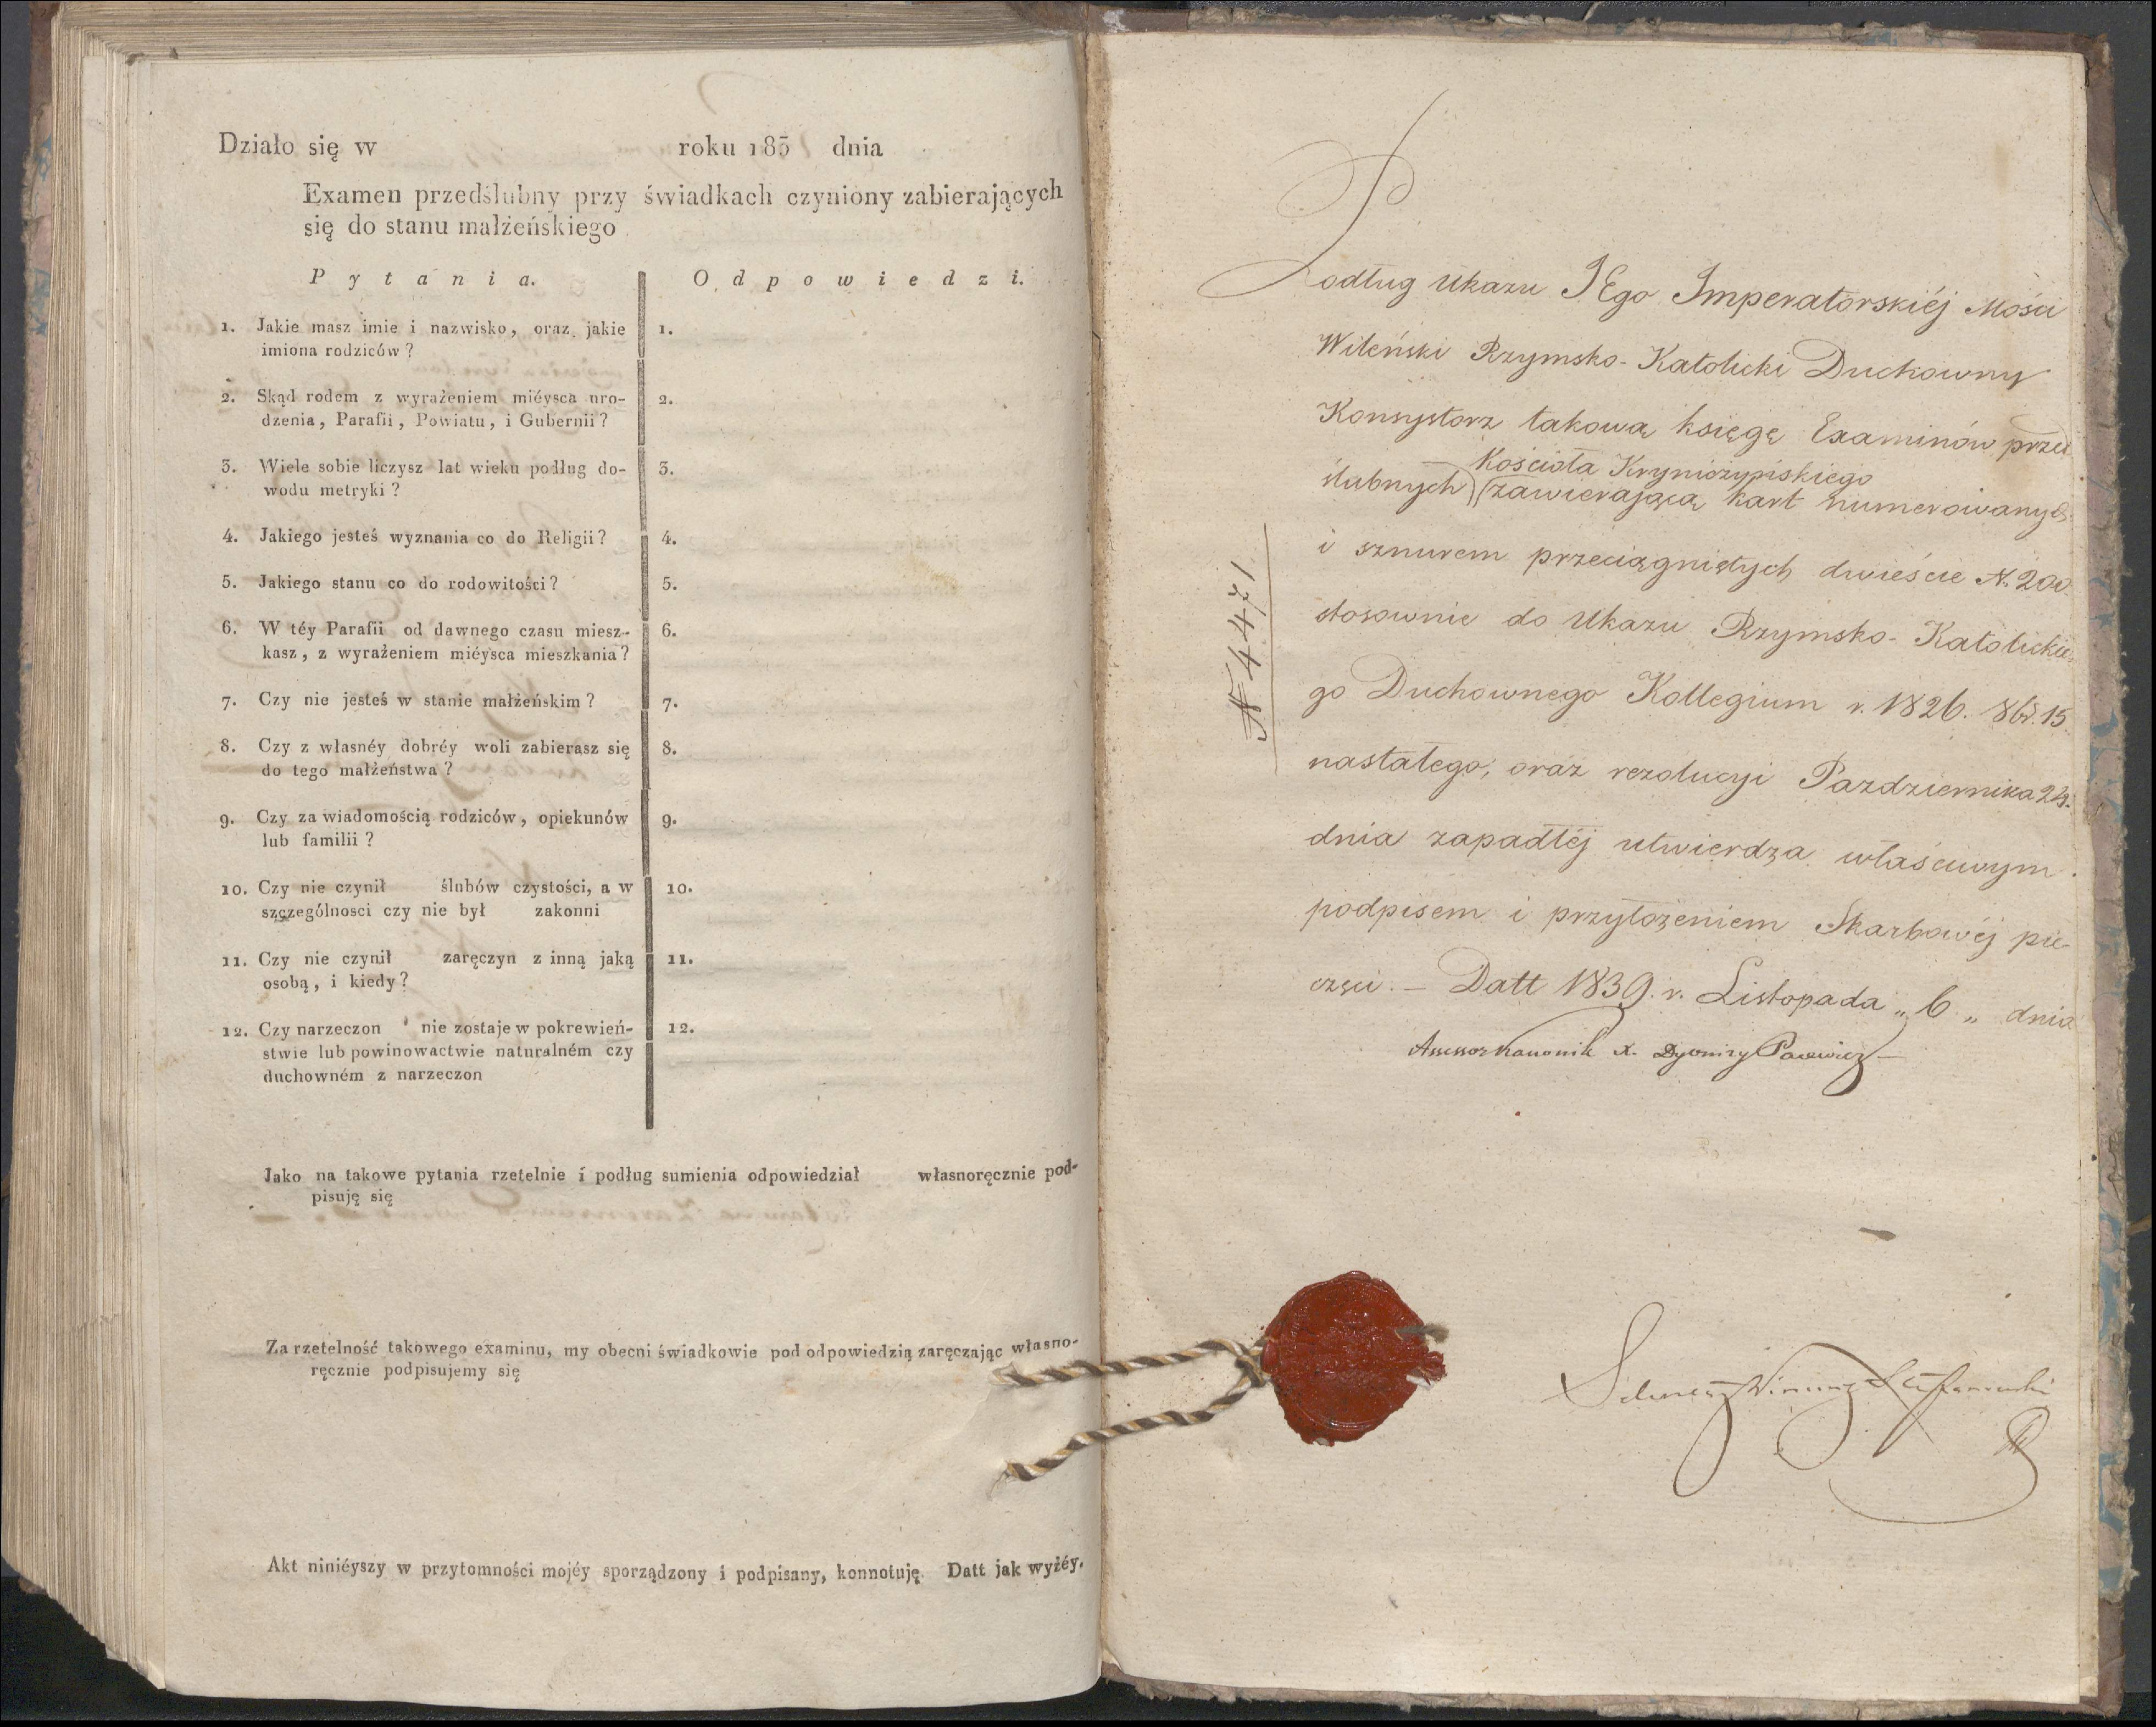 Działo się w roku 185 dnia
Examen przedślubny przy świadkach czyniony zabierających
się do stanu małżeńskiego
Pytania. Odpowiedzi.
1. Jakie masz imie i nazwisko, oraz jakie 1.
imiona rodziców?
2. Skąd rodem z wyrażeniem miéysca uro- 2.
dzenia, Parafii, Powiatu, i Gubernii?
3. Wiele sobie liczysz lat wieku podług do- 3.
wodu metryki?
4. Jakiego jesteś wyznania co do Religii? 4.
5. Jakiego stanu co do rodowitości? 5.
6. W téy Parafii od dawnego czasu miesz- 6.
kasz, z wyrażeniem miéysca mieszkania?
7. Czy nie jesteś w stanie małżeńskim? 7.
8. Czy z własnéy dobréy woli zabierasz się 8.
do tego małżeństwa?
9. Czy za wiadomością rodziców, opiekunów 9.
lub familii?
10. Czy nie czynił ślubów czystości, a w 10.
szczególnosci czy nie był zakonni
11. Czy nie czynił zaręczyn z inną jaką 11.
osobą, i kiedy?
12. Czy narzeczon nie zostaje w pokrewień- 12.
stwie lub powinowactwie naturalném czy
duchowném z narzeczon
Jako na takowe pytania rzetelnie i podług sumienia odpowiedział własnoręcznie pod-
pisuję się
Za rzetelność takowego examinu, my obecni świadkowie pod odpowiedzią zaręczając własno-
ręcznie podpisujemy się
Akt niniéyszy w przytomności mojéy sporządzony i podpisany, konnotuję. Datt jak wyżéy.
Podług Ukazu JEgo Imperatorskiéj Mości
Wileński Rzymsko-Katolicki Duchowny
Konsystorz takową księgę Examinów przed
Kościoła Krynicz­ypiskiego
ślubnych zawierającą kart numerowanych
i sznurem przeciągniętych dwieście N. 200
stosownie do Ukazu Rzymsko-Katolickie-
go Duchownego Kollegium r. 1826. 8br. 15
nastałego, oraz rezolucyi Pazdziernika 24.
dnia zapadłéj utwierdza właściwym
podpisem i przyłożeniem Skarbowéj pie-
częci. — Datt 1839. r. Listopada „6„ dnia
Assessor Kanonik X. Dyonizy Pacewicz
N 4471